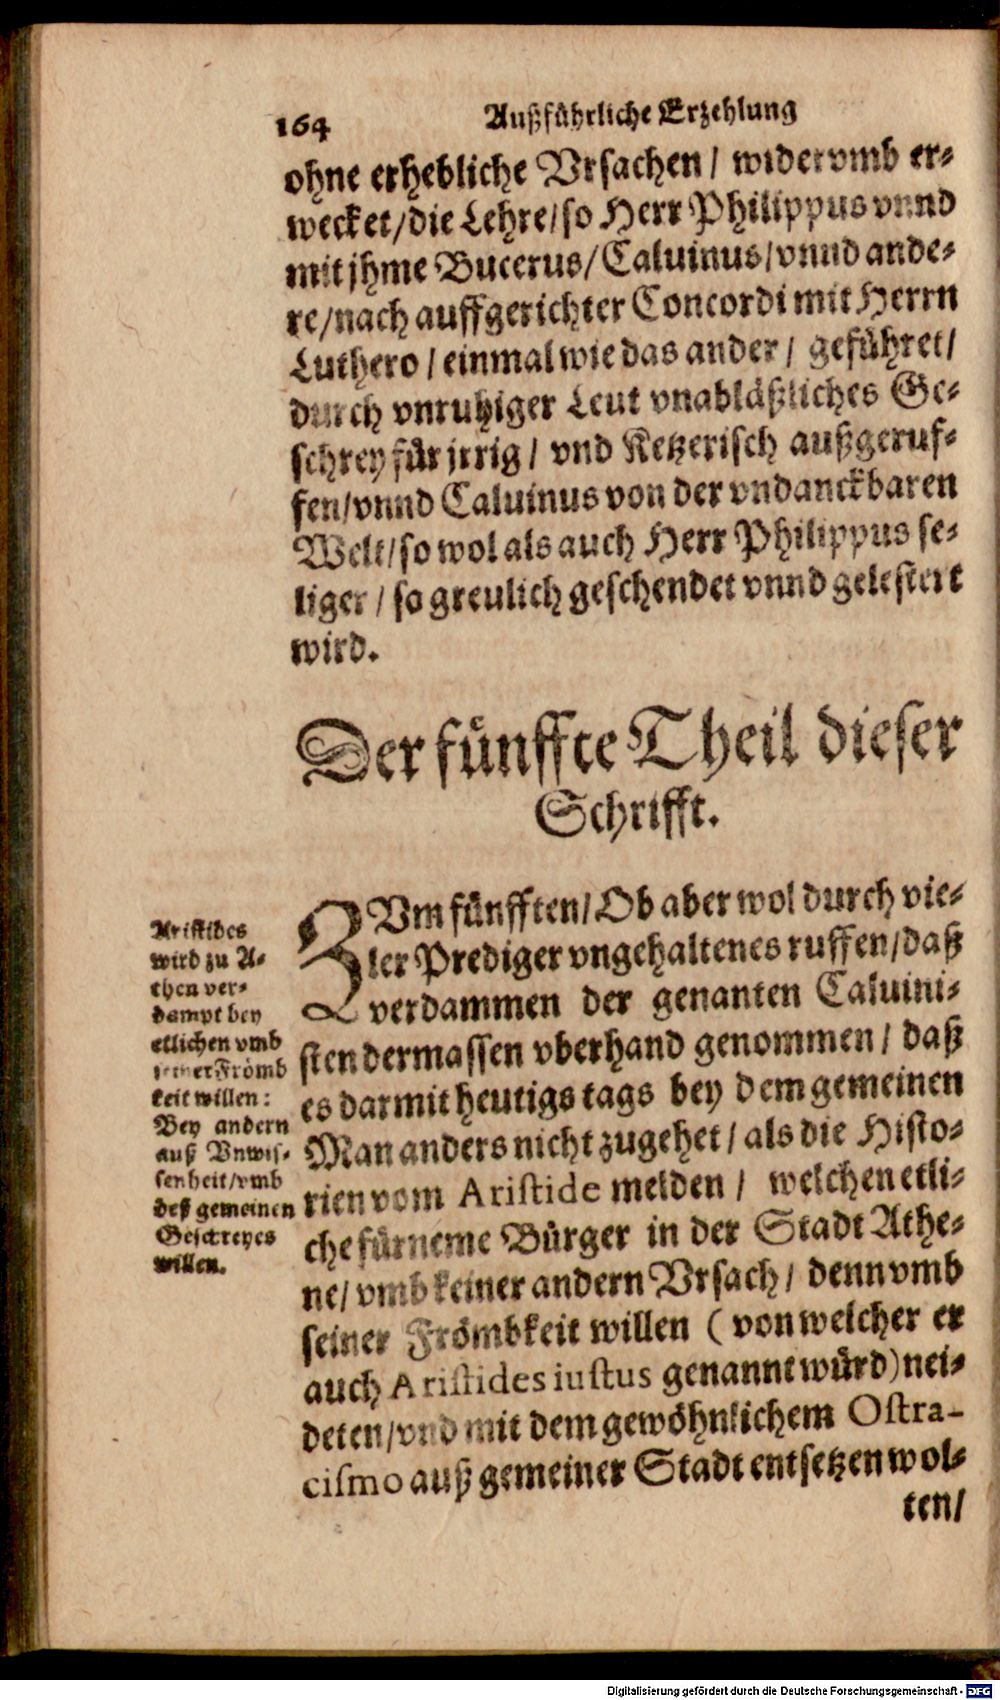 164 Außführliche Erzehlung
ohne erhebliche Vrsachen / widervmb er-
wecket / die Lehre / so Herr Philippus vnnd
mit jhme Bucerus / Caluinus / vnnd ande-
re / nach auffgerichter Concordi mit Herrn
Luthero / einmal wie das ander / geführet /
durch vnruhiger Leut vnabläßliches Ge-
schrey für jrrig / vnd Ketzerisch außgeruf-
fen / vnnd Caluinus von der vndanckbaren
Welt / so wol als auch Herr Philippus se-
liger / so greulich geschendet vnnd gelestert
wird.
Der fünffte Theil dieser
Schrifft.
ZVm fünfften / Ob aber wol durch vie-
ler Prediger vngehaltenes ruffen / daß
verdammen der genanten Caluini-
sten dermassen vberhand genommen / daß
es darmit heutigs tags bey dem gemeinen
Man anders nicht zugehet / als die Histo-
rien vom Aristide melden / welchen etli-
che fürneme Bürger in der Stadt Athe-
ne / vmb keiner andern Vrsach / denn vmb
seiner Frömbkeit willen ( von welcher er
auch Aristides iustus genannt würd) nei-
deten / vnd mit dem gewöhnlichem Ostra-
cismo auß gemeiner Stadt entsetzen wol-
ten /
Aristides
wird zu A-
then ver-
dampt bey
etlichen vmb
seiner Frömb
keit willen:
Bey andern
auß Vnwis-
senheit / vmb
deß gemeinen
Geschreyes
willen.
Digitalisierung gefördert durch die Deutsche Forschungsgemeinschaft - DFG